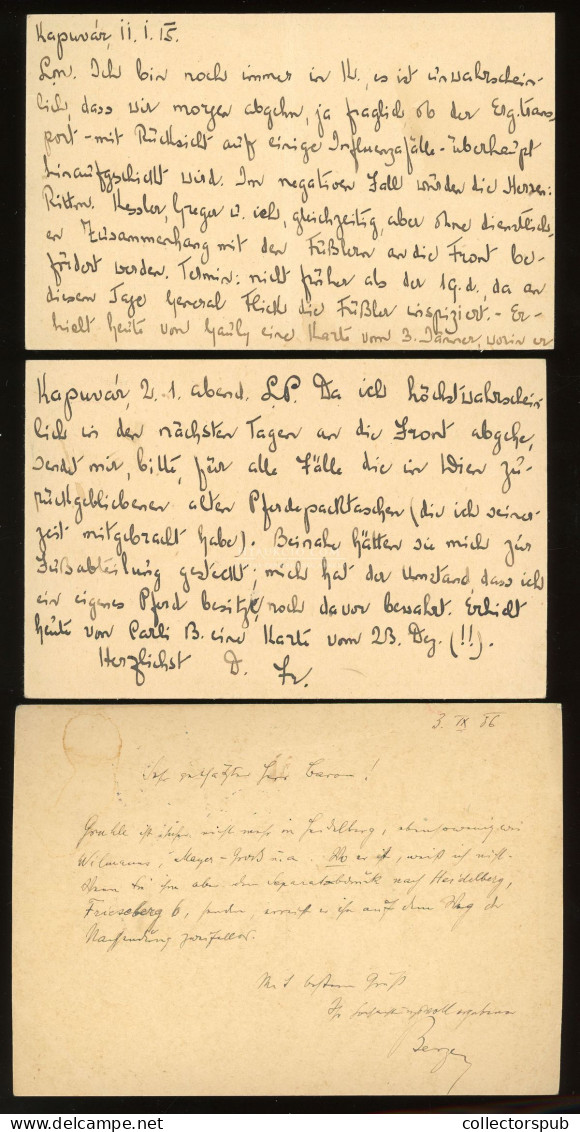 Kapuvár, 11.I.15.
Lm. Ich bin noch immer in K., es ist unwahrschein-
lich, dass wir morgen abgehn, ja fraglich ob der Erg.trans-
port - mit Rücksicht auf einige Influenzafälle - überhaupt
hinaufgschickt wird. Im negativen Fall würden die Herren:
Rittm. Kessler, Greger u. ich, gleichzeitig, aber ohne dienstlich-
en Zusammenhang mit den Füßlern an die Front be-
fördert werden. Termin: nicht früher als der 19.d., da an
diesem Tage General Flick die Füßler inspiziert. - Er-
hielt heute von eine Karte vom 3. Jänner, worin er
Kapuvár, 2.1. abend. L.P. Da ich höchstwahrschein-
lich in den nächsten Tagen an die Front abgehe,
sendet mir, bitte, für alle Fälle die in Wien zu-
rückgebliebenen alten Pferdepacktaschen (die ich seiner-
zeit mitgebracht habe). Beinahe hätten sie mich zur
Fußabteilung gesteckt; mich hat der Umstand, dass ich
ein eigenes Pferd besitze, noch davor bewahrt. Erhielt
heute von Carli B. eine Karte vom 23. Dez. (!!).
Herzlichst D. Fr.
3. IX 36
Sehr geehrter Herr Baron!
Gruhle ist nicht mehr in Heidelberg, ebensowenig wie
Wilmanns, Mayer-Groß u.a. Wo er ist, weiß ich nicht.
Wenn Sie ihm aber den Separatabdruck nach Heidelberg,
6, senden, erreicht er ihn auf dem Weg der
Nachsendung zweifellos.
Mit bestem Gruß
Ihr
collectorspub
delcampe.net